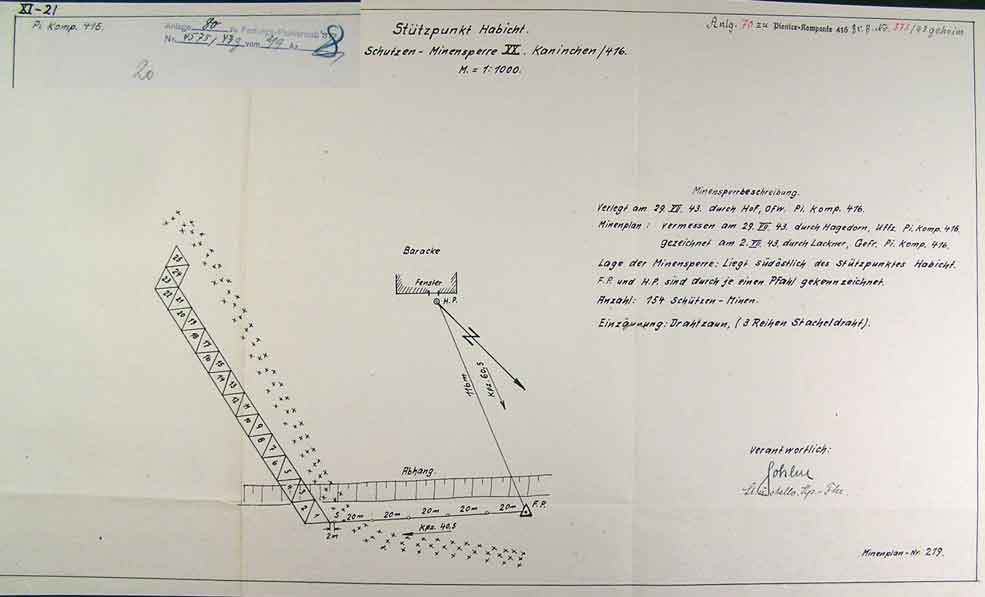 XI-21
Pi. Komp. 416.
Anlage 80 zu
Nr. 4575/43g vom
8
20
Stützpunkt Habicht.
Schützen-Minensperre XV. Kaninchen/416.
M. = 1:1000.
Anlg. 70 zu Pionier-Kompanie 416 Nr. 575/43 geheim
Minensperrbeschreibung.
Verlegt am 29. VII. 43. durch Hof, Ofw. Pi. Komp. 416.
Minenplan: vermessen am 29. VII. 43. durch Hagedorn, Uffz. Pi. Komp. 416.
gezeichnet am 2. VII. 43. durch Lackner, Gefr. Pi. Komp. 416.
Lage der Minensperre: Liegt südöstlich des Stützpunktes Habicht.
F.P. und H.P. sind durch je einen Pfahl gekennzeichnet.
Anzahl: 154 Schützen-Minen.
Einzäunung: Drahtzaun, (3 Reihen Stacheldraht).
Baracke
Fenster
H.P.
N
116m
Kpz. 60,5
Abhang.
F.P.
S 20m 20m 20m 20m 20m
2m
Kpz. 40,5
25
24
23
22
21
20
19
18
17
16
15
14
13
12
11
10
9
8
7
6
5
4
3
2
1
Verantwortlich:
Minenplan-Nr. 219.